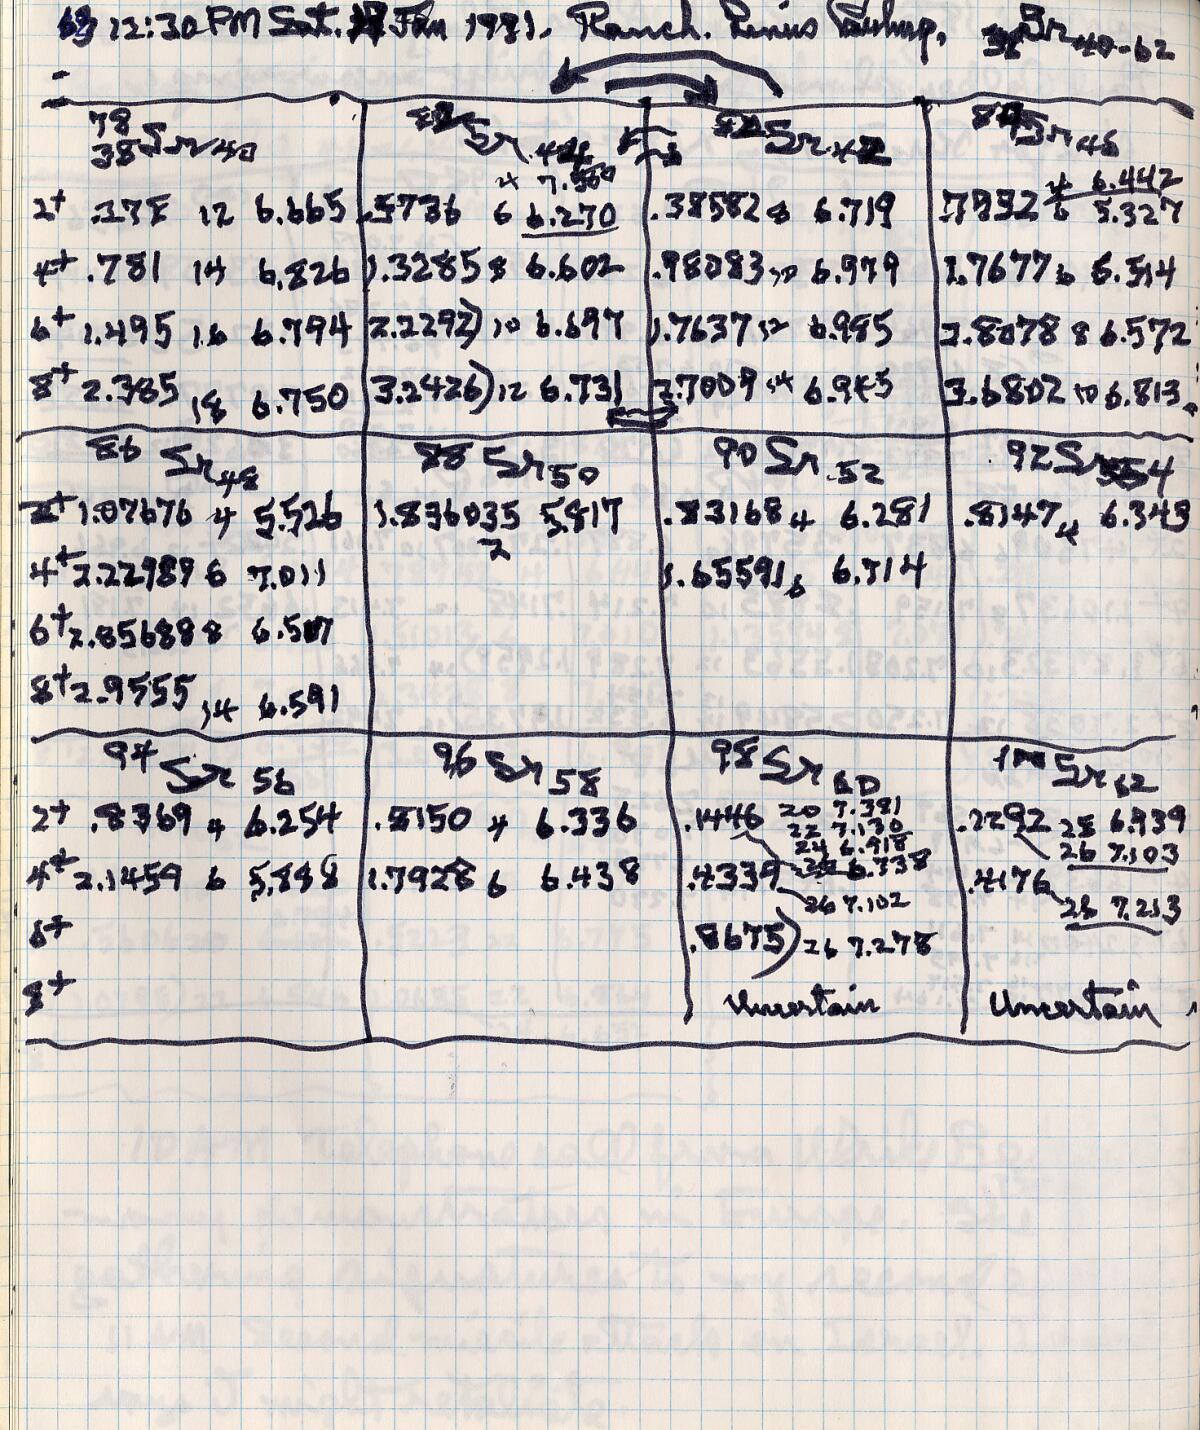 63 12:30 PM Sat. 17 Jan 1981. Ranch. Linus Pauling. 38Sr40-62
78 38 Sr 40
82 Sr 44
80 Sr 42
84 Sr 46
4 7.560
4 6.442
2+ .278 12 6.665 .5736 6 6.270 .38582 8 6.719 .7932 6 5.327
4+ .781 14 6.826 1.3285 8 6.602 .98083 10 6.979 1.7677 6 6.514
6+ 1.495 16 6.794 2.2292) 10 6.697 1.7637 12 6.985 2.8078 8 6.572
8+ 2.385 18 6.750 3.2426) 12 6.731 2.7009 14 6.945 3.6802 10 6.813
86 Sr 48 88 Sr 50 90 Sr 52 92 Sr 54
2+ 1.07676 4 5.526 1.836035 2 5.817 .83168 4 6.281 .8147 4 6.343
4+ 2.22989 6 7.011 1.65591 6 6.714
6+ 2.85688 8 6.517
8+ 2.9555 14 6.591
94 Sr 56 96 Sr 58 98 Sr 60 100 Sr 62
2+ .8369 4 6.254 .8150 4 6.336 .1446 20 7.381
22 7.130
24 6.918
26 6.738
.2292 28 6.939
26 7.103
4+ 2.1459 6 5.898 1.7928 6 6.438 .4339 26 7.102 .4176 28 7.213
6+ .8675) 26 7.278
8+ Uncertain Uncertain